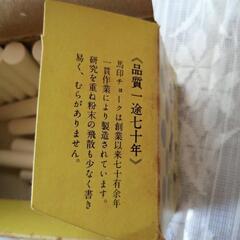 《品質一途七十年》
馬印チョークは創業以来七十有余年
一貫作業により製造されています。
研究を重ね粉末の飛散も少なく書き
易く、むらがありません。